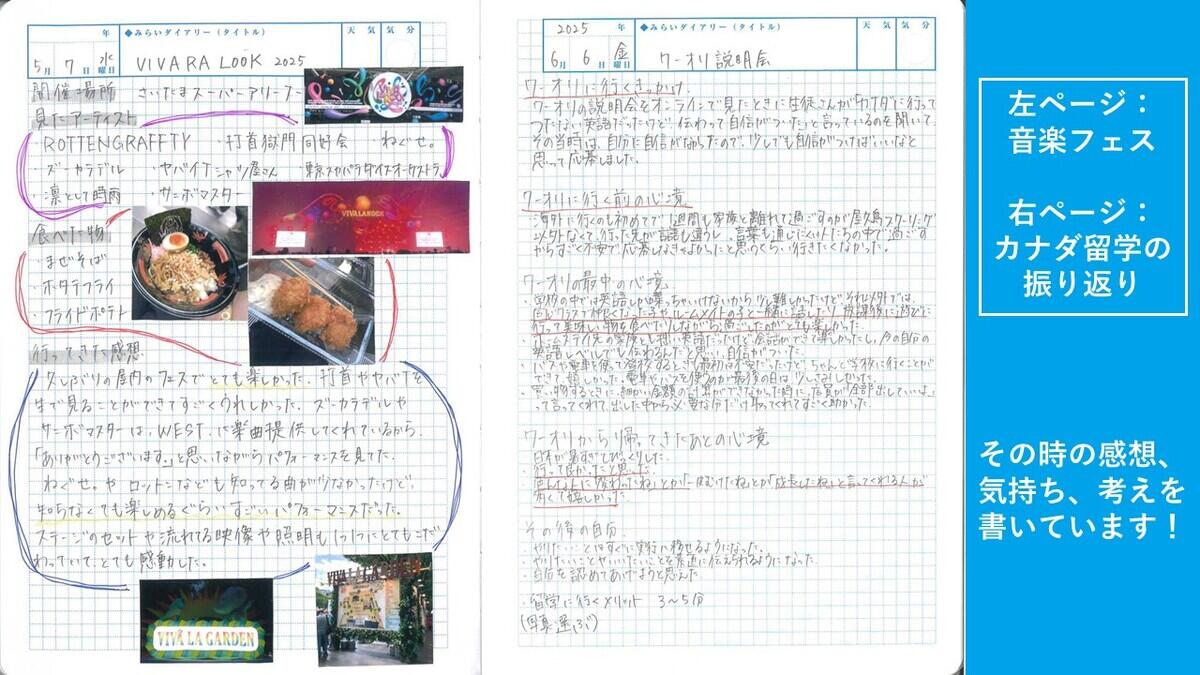 年
◆みらいダイアリー(タイトル)
天気
気分
5月 7日 水曜日
VIVA RA LOOK 2025
開催場所 さいたまスーパーアリーナ
見たアーティスト
・ROTTENGRAFFTY ・打首獄門同好会 ・ねぐせ。
・ズーカラデル ・ヤバイTシャツ屋さん ・東京スカパラダイスオーケストラ
・凛として時雨 ・サンボマスター
VIVA LA ROCK
食べた物
・まぜそば
・ホタテフライ
・フライドポテト
行ってきた感想
久しぶりの屋内のフェスでとても楽しかった。打首やヤバTを
生で見ることができてすごくうれしかった。ズーカラデルや
サンボマスターは、WEST.に楽曲提供してくれているから、
「ありがとうございます。」と思いながらパフォーマンスを見てた。
ねぐせ。や ロットンなども知ってる曲が少なかったけど、
知らなくても楽しめるぐらいすごいパフォーマンスだった。
ステージのセットや流れてる映像や照明も1つ1つにとてもこだ
わっていて、とても感動した。
VIVA LA GARDEN
VIVA LA GARDEN
2025 年
◆みらいダイアリー(タイトル)
天気
気分
6月 6日 金曜日
ワーオリ説明会
ワーオリに行くきっかけ
ワーオリの説明会をオンラインで見たときに生徒さんが「カナダに行って
つたない英語だったけど、伝わって自信がついた」と言っているのを聞いて、
その当時は、自分に自信がなかったので、少しでも自信がつけばいいなと
思って応募しました。
ワーオリに行く前の心境
・海外に行くのも初めてで1週間も家族と離れて過ごすのが屋久島スクーリング
以外なくて、行った先が
言葉も通じにくい人たちの中で過ごす
からすごく不安で、応募しなきゃよかったと思うくらい、行きたくなかった。
ワーオリの最中の心境
・学校の中では英語しか喋っちゃいけないから少し難しかったけど、それ以外では、
同じクラスで仲良くなった子やルームメイトの子と一緒に話したり、放課後に遊びに
行って美味しい物を食べたりしながら過ごしたのがとても楽しかった。
・ホームステイ先の家族とも拙い英語だったけど会話ができて楽しかったし、今の自分の
英語レベルでも伝わるんだと思い、自信がついた。
・バスや電車を使って登校するときも最初は不安だったけど、ちゃんと学校に行くことが
できて嬉しかった。電車やバスを使うのが最後の日は少しさみしかった。
・買い物するときに、細かい金額の計算ができなかった時に、店員が「全部出していいよ。」
って言ってくれて、出した中から必要な分だけ取ってくれてすごく助かった。
ワーオリから帰ってきたあとの心境
・日本が暑すぎてびっくりした。
・行って良かったと思った。
・色んな人に「変わったね」とか「成長したね」と言ってくれる人が
多くて嬉しかった。
その後の自分
・やりたいことはすぐに実行に移せるようになった。
・やりたいことやいいたいことを素直に伝えられるようになった。
・自分を認めてあげようと思えた
・留学に行くメリット 3〜5分
(写真選ぶ)
左ページ:
音楽フェス
右ページ:
カナダ留学の
振り返り
その時の感想、
気持ち、考えを
書いています!